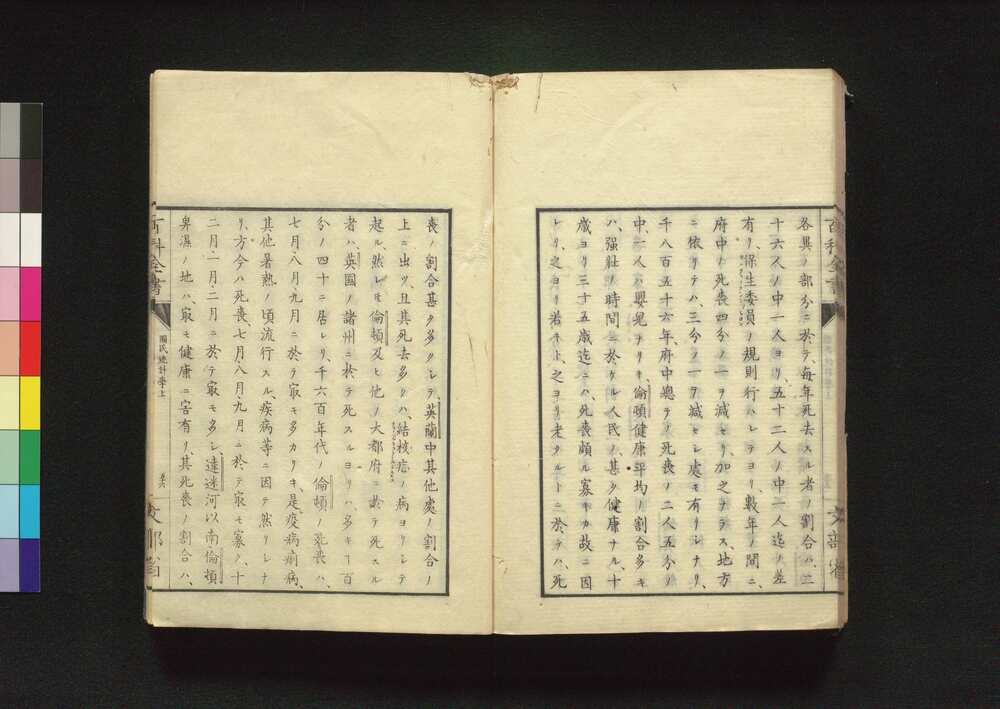 各異ノ部分ニ於テ、毎年死去スル者ノ割合ハ、三
十六人ノ中一人ヨリ、五十二人ノ中二人迄ノ差
有リ、保生委員ノ規則行ハレテヨリ、數年ノ間ニ、
府中ノ死喪四分ノ一ヲ減セリ、加之ナラス、地方
ニ依リテハ、三分ノ一ヲ減セシ處モ有リシナリ、
千八百五十六年、府中總テノ死喪ノ二人五分ノ
中、一人ハ嬰兒ナリキ、倫頓健康平均ノ割合多キ
ハ、强壯ノ時間ニ於ケル人民ノ、甚タ健康ナル、十
歳ヨリ三十五歳迄ニハ、死喪頗ル寡キカ故ニ因
レリ、之ヨリ若キト、之ヨリ老タルトニ於テハ、死
百科全書
文部省
喪ノ割合甚タ多クシテ、英蘭中其他處ノ割合ノ
上ニ出ツ、且其死去多クハ、結核症ノ病ヨリシテ
起ル、然レモ倫頓及ヒ他ノ大都府ニ於テ死スル
者ハ、英國ノ諸州ニ於テ死スルヨリハ、多キヿ百
分ノ四十ニ居レリ、千六百年代ノ倫頓ノ死喪ハ、
七月八月九月ニ於テ㝡モ多カリキ、是疫病痢病、
其他暑熱ノ頃流行スル、疾病等ニ因テ然リシナ
リ、方今ハ死喪、七月八月九月ニ於テ㝡モ寡ク、十
二月一月二月ニ於テ㝡モ多シ、達迷河以南倫頓
卑濕ノ地ハ、㝡モ健康ニ害有リ、其死喪ノ割合ハ、
百科全書
國民統計學上
文部省